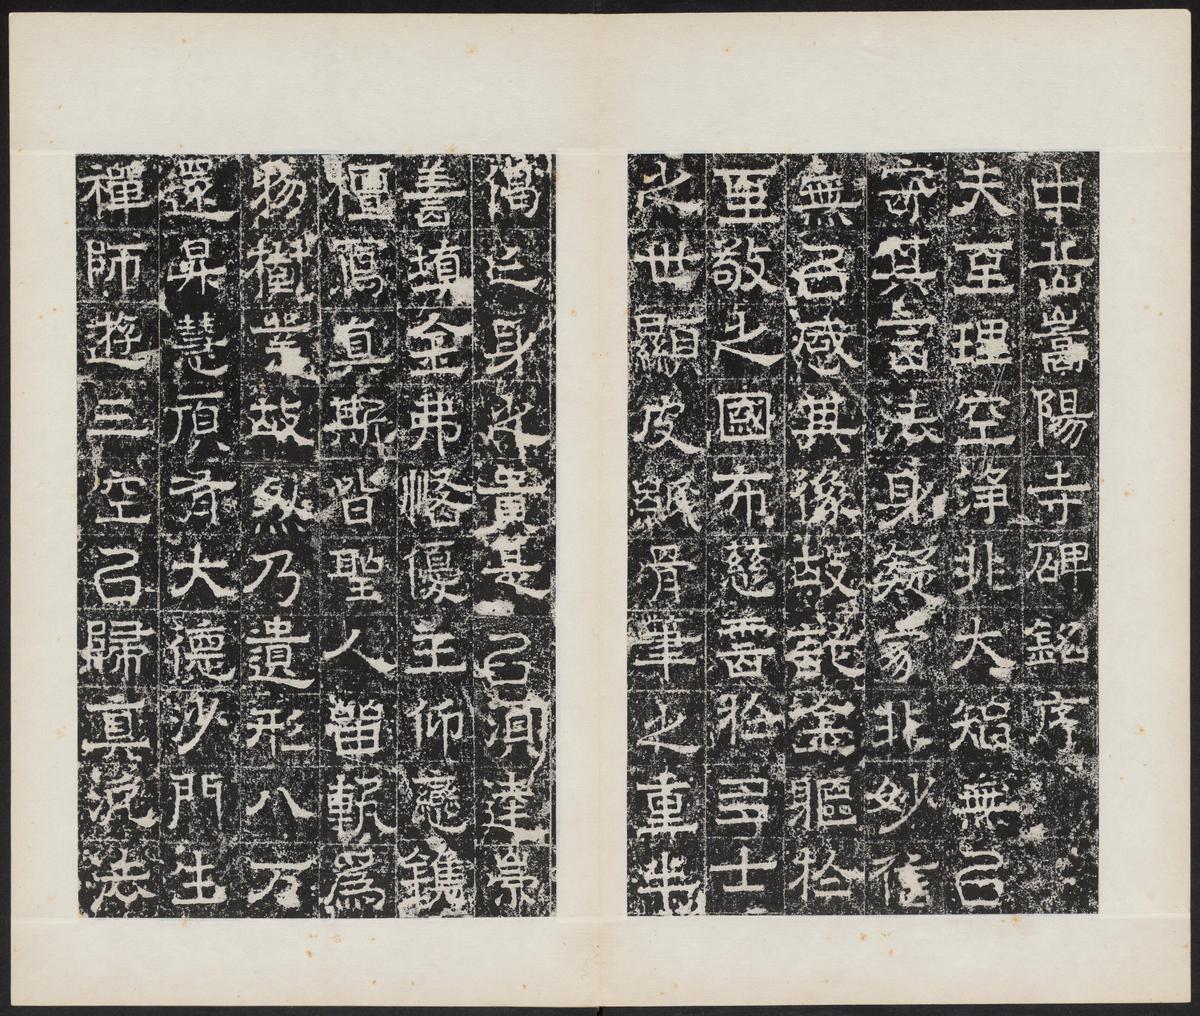 中岳嵩陽寺碑銘序
夫至理空淨非大智無以
寄其言法身凝寂非妙信
無以感其後故託金軀於
至敬之國布慈雲於多士
之世顯皮紙骨筆之重半
偈亡身之貴是以須達崇
善填金弗悋優王仰戀鐫
檀寫真斯皆聖人留軌為
物樹業故矣乃遺形八万
還昇慧頂有大德沙門生
禪師遊三空以歸真汎法